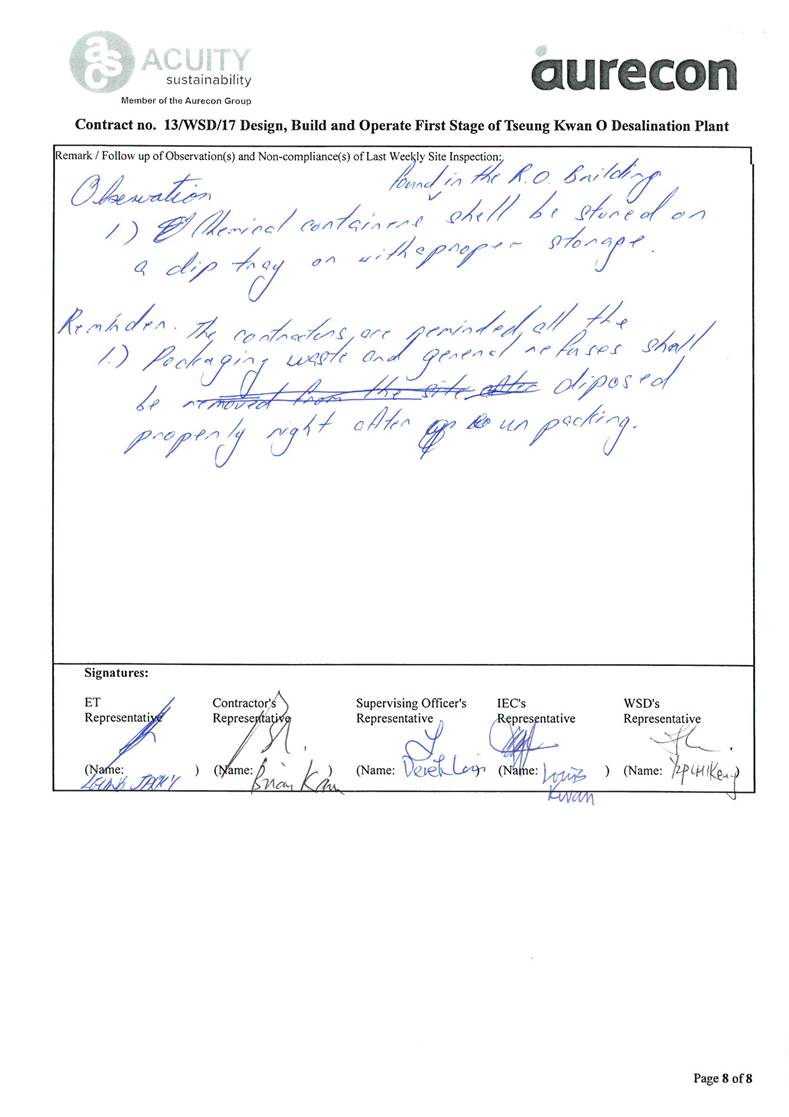 asc ACUITY
sustainability
Member of the Aurecon Group
aurecon
Contract no. 13/WSD/17 Design, Build and Operate First Stage of Tseung Kwan O Desalination Plant
Remark / Follow up of Observation(s) and Non-compliance(s) of Last Weekly Site Inspection:
Observation
found in the R.O. Building
1.) Chemical containers shall be stored on
a dip tray or with a proper storage.
Reminder. The contractors are reminded all the
1.) Packaging waste and general refuses shall
be removed from the site after diposed
properly right after un packing.
Signatures:
ET Representative
Contractor's Representative
Supervising Officer's Representative
IEC's Representative
WSD's Representative
(Name: JACKY )
(Name: Brian Kam )
(Name: Derek )
(Name: Louis Kwan )
(Name: )
Page 8 of 8